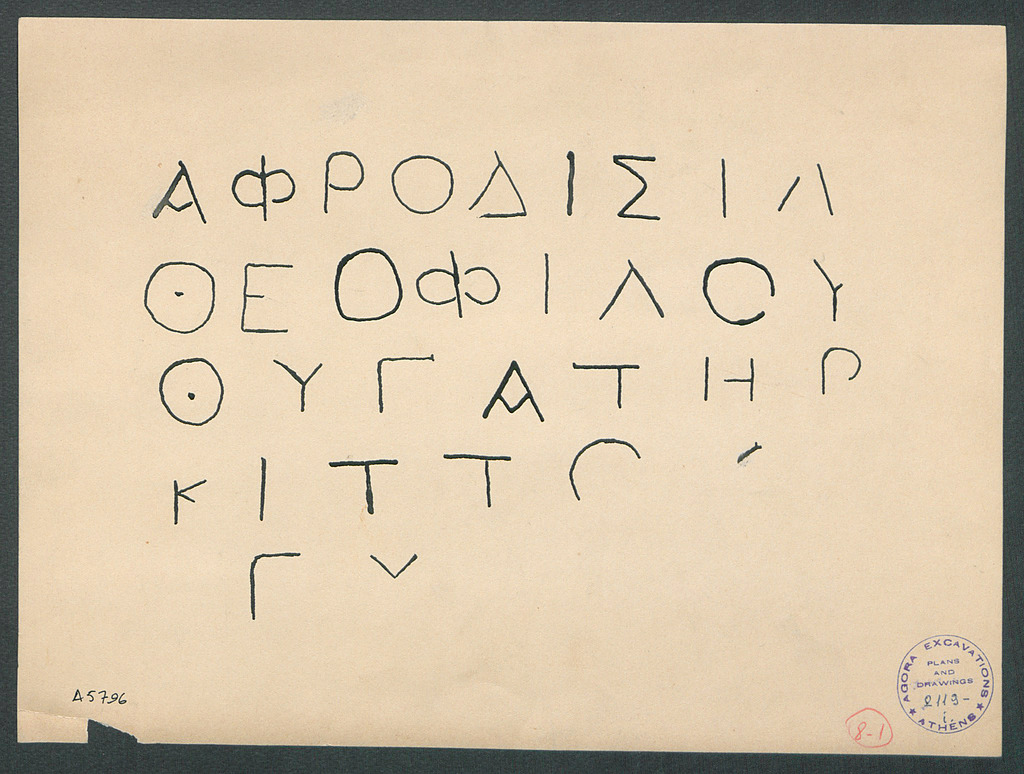 ΑΦΡΟΔΙΣΙΑ
ΘΕΟΦΙΛΟΥ
ΘΥΓΑΤΗΡ
ΚΙΤΤΟ
ΓΥ
Α5796
AGORA EXCAVATIONS
PLANS
AND
DRAWINGS
2119-
i.
ATHENS
8-1